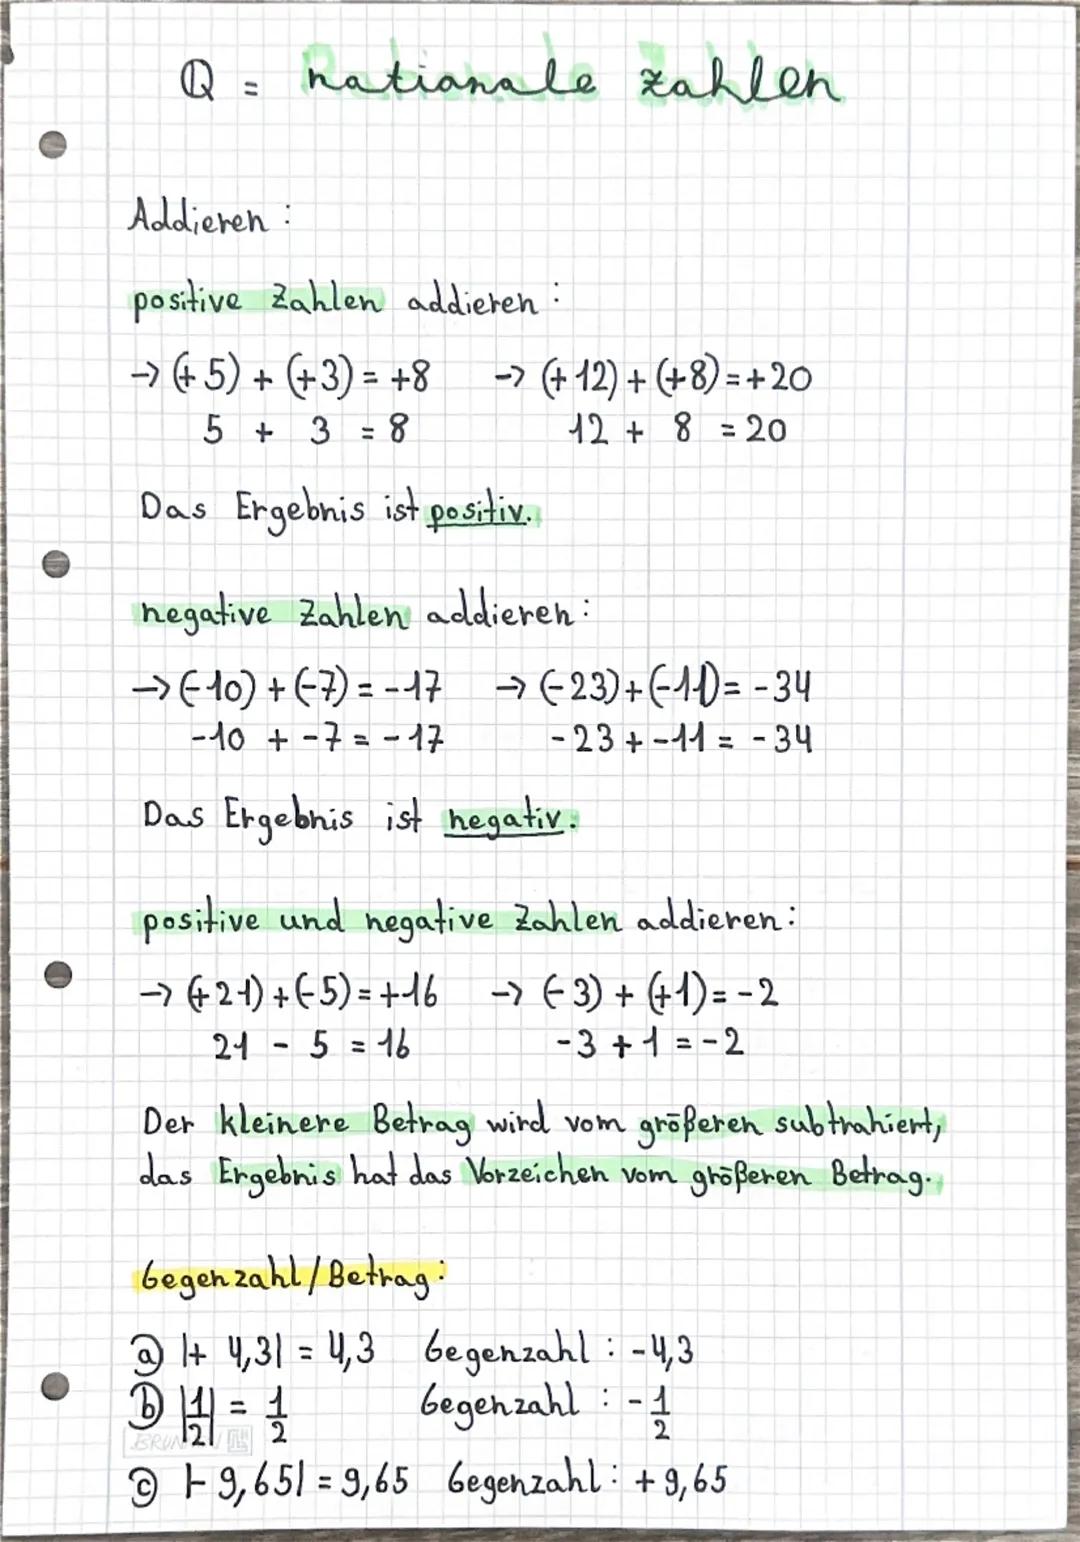 ℚ = rationale Zahlen
Addieren :
positive Zahlen addieren :
→ (+5) + (+3) = +8 → (+12) + (+8) = +20
5 + 3 = 8 12 + 8 = 20
Das Ergebnis ist positiv.
negative Zahlen addieren :
→ (-10) + (-7) = -17 → (-23) + (-11) = -34
-10 + -7 = -17 -23 + -11 = -34
Das Ergebnis ist negativ.
positive und negative Zahlen addieren :
→ (+21) + (-5) = +16 → (-3) + (+1) = -2
21 - 5 = 16 -3 + 1 = -2
Der kleinere Betrag wird vom größeren subtrahiert,
das Ergebnis hat das Vorzeichen vom größeren Betrag.
Gegenzahl / Betrag :
ⓐ |+ 4,3| = 4,3 Gegenzahl : -4,3
ⓑ |1/2| = 1/2 Gegenzahl : - 1/2
ⓒ |- 9,65| = 9,65 Gegenzahl : + 9,65